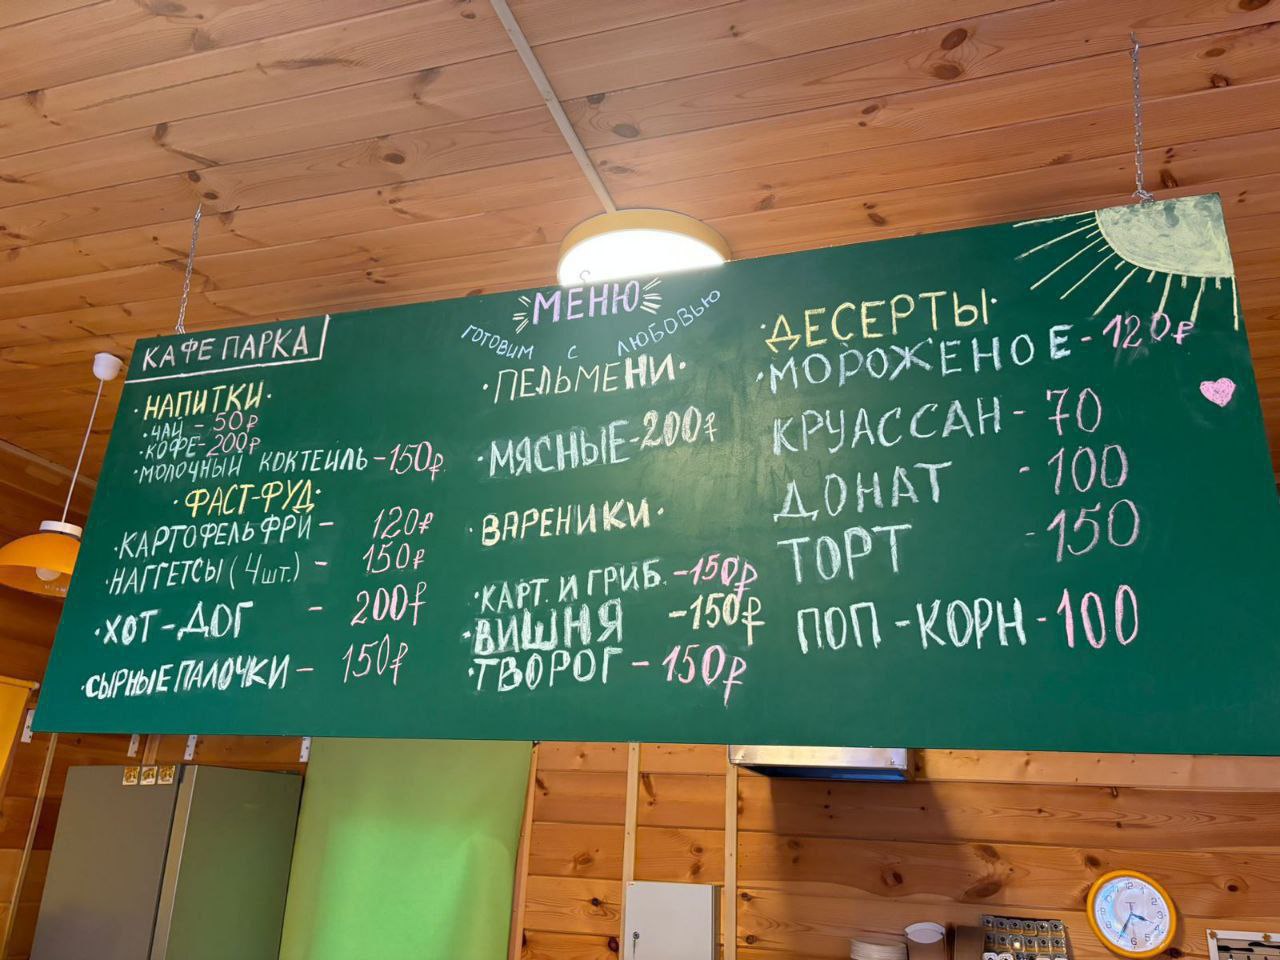 КАФЕ ПАРКА
·НАПИТКИ·
·ЧАЙ - 50₽
·КОФЕ - 200₽
·МОЛОЧНЫЙ КОКТЕЙЛЬ - 150₽
·ФАСТ-ФУД·
·КАРТОФЕЛЬ ФРИ - 120₽
·НАГГЕТСЫ (4 шт.) - 150₽
·ХОТ-ДОГ - 200₽
·СЫРНЫЕ ПАЛОЧКИ - 150₽
МЕНЮ
ГОТОВИМ С ЛЮБОВЬЮ
·ПЕЛЬМЕНИ·
·МЯСНЫЕ - 200₽
·ВАРЕНИКИ·
·КАРТ. И ГРИБ. - 150₽
·ВИШНЯ - 150₽
·ТВОРОГ - 150₽
·ДЕСЕРТЫ·
·МОРОЖЕНОЕ - 120₽
КРУАССАН - 70
ДОНАТ - 100
ТОРТ - 150
ПОП-КОРН - 100